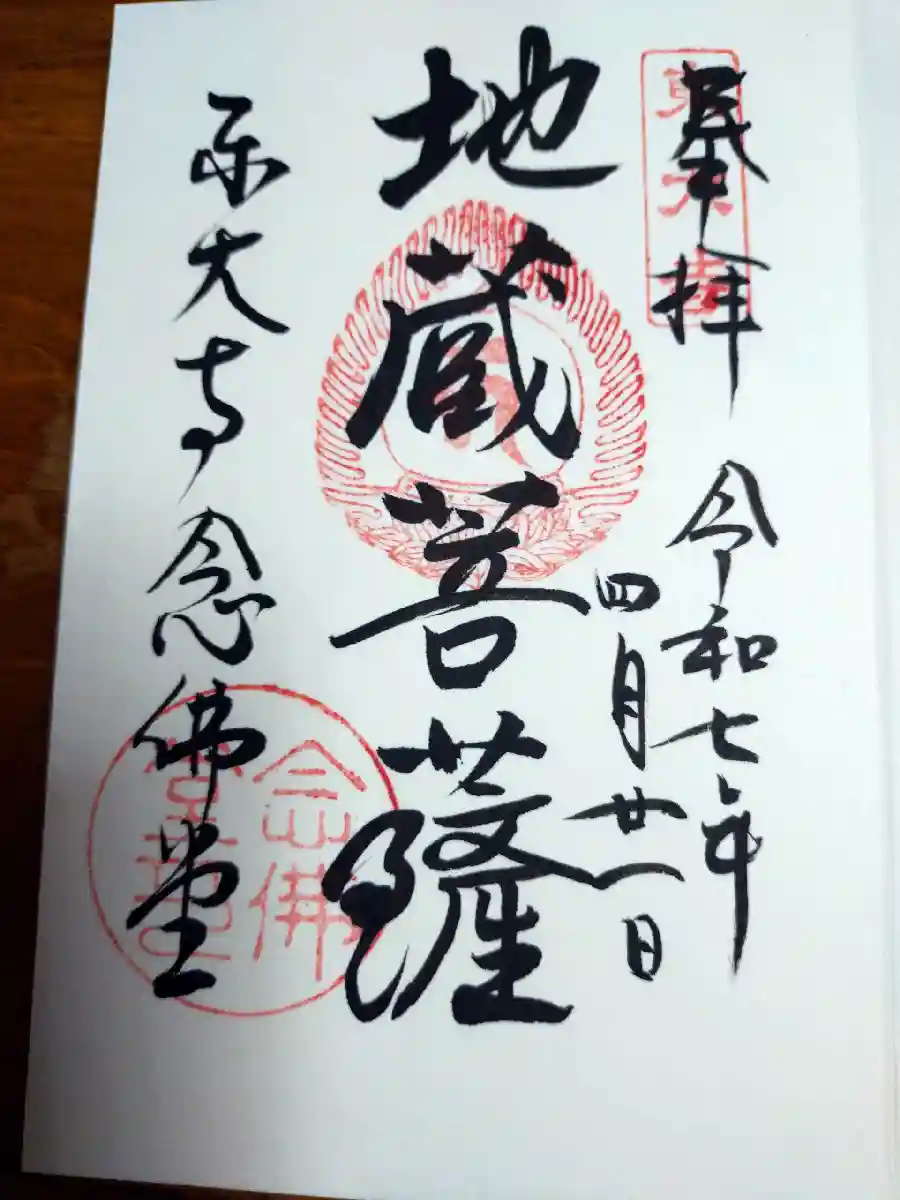 奉拝
東大寺
令和七年
四月廿一日
地蔵菩薩
東大寺念佛堂
念佛
堂印